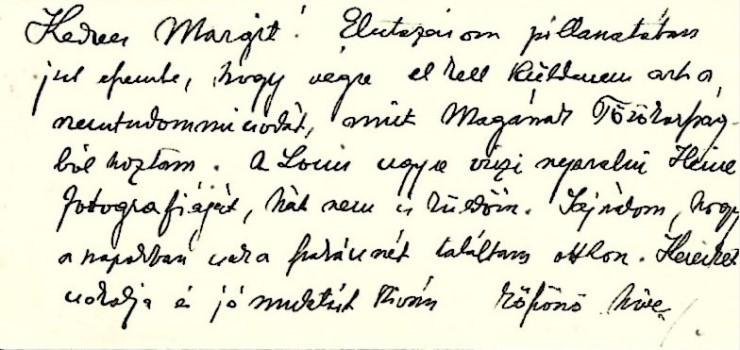 Kedves Margit! Elutazásom pillanatában
jut eszembe, hogy végre el kell küldenem azt a
nemtudommicsodát, mit Magának Törökország-
ból hoztam. A Louis ugye viszi nyaralni Heine
fotografiáját, hát nem is küldöm. Sajnálom, hogy
a napokban csak a testvérnét találtam otthon. Kezeiket
csókolja és jó mulatást kíván köszönő híve